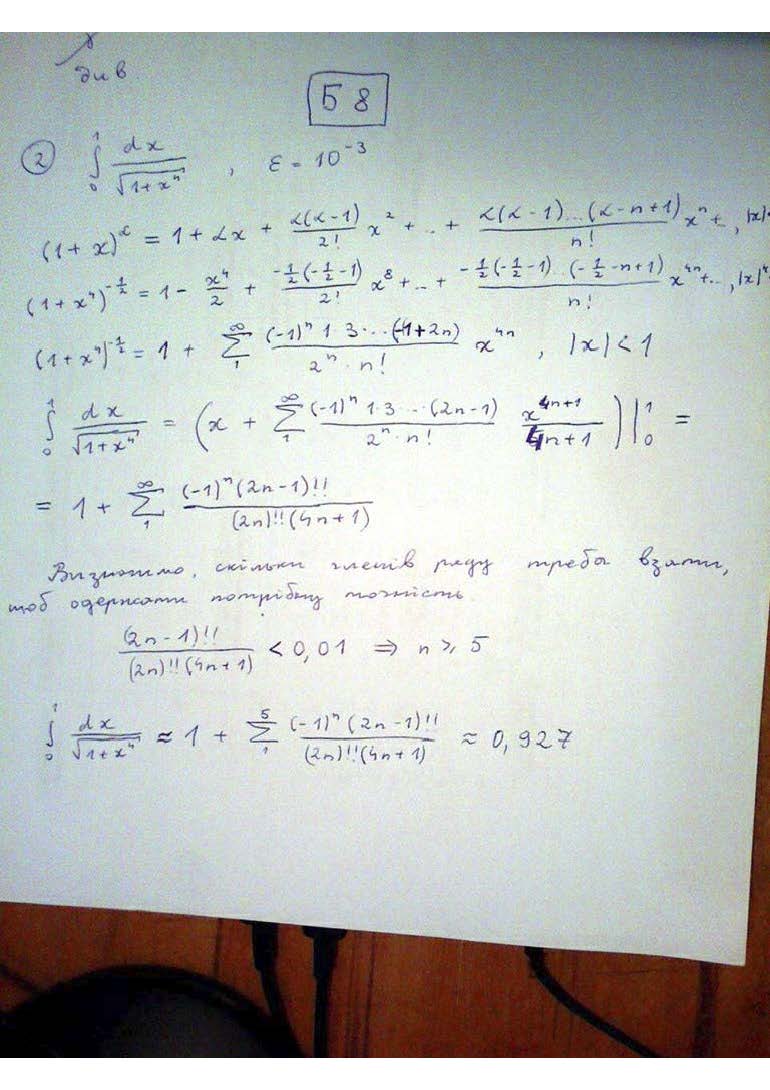 див
Б 8
② ∫₀¹ dx/√(1+x⁴) , ε = 10⁻³
(1 + x)^α = 1 + αx + α(α-1)/2! x² + .. + α(α-1)...(α-n+1)/n! xⁿ + .. , |x|<
(1 + x⁴)^(-1/2) = 1 - x⁴/2 + -1/2(-1/2-1)/2! x⁸ + .. + -1/2(-1/2-1)..(-1/2-n+1)/n! x⁴ⁿ + .. , |x|⁴
(1 + x⁴)^(-1/2) = 1 + ∑₁^∞ (-1)ⁿ 1·3·...(-1+2n)/2ⁿ·n! x⁴ⁿ , |x| < 1
∫₀¹ dx/√(1+x⁴) = (x + ∑₁^∞ (-1)ⁿ 1·3·...·(2n-1)/2ⁿ·n! x⁴ⁿ⁺¹/4n+1)|₀¹ =
= 1 + ∑₁^∞ (-1)ⁿ(2n-1)!!/(2n)!!(4n+1)
Визначимо, скільки членів ряду треба взяти,
щоб одержати потрібну точність.
(2n-1)!!/(2n)!!(4n+1) < 0,01 ⇒ n ⩾ 5
∫₀¹ dx/√(1+x⁴) ≈ 1 + ∑₁⁵ (-1)ⁿ(2n-1)!!/(2n)!!(4n+1) ≈ 0,927